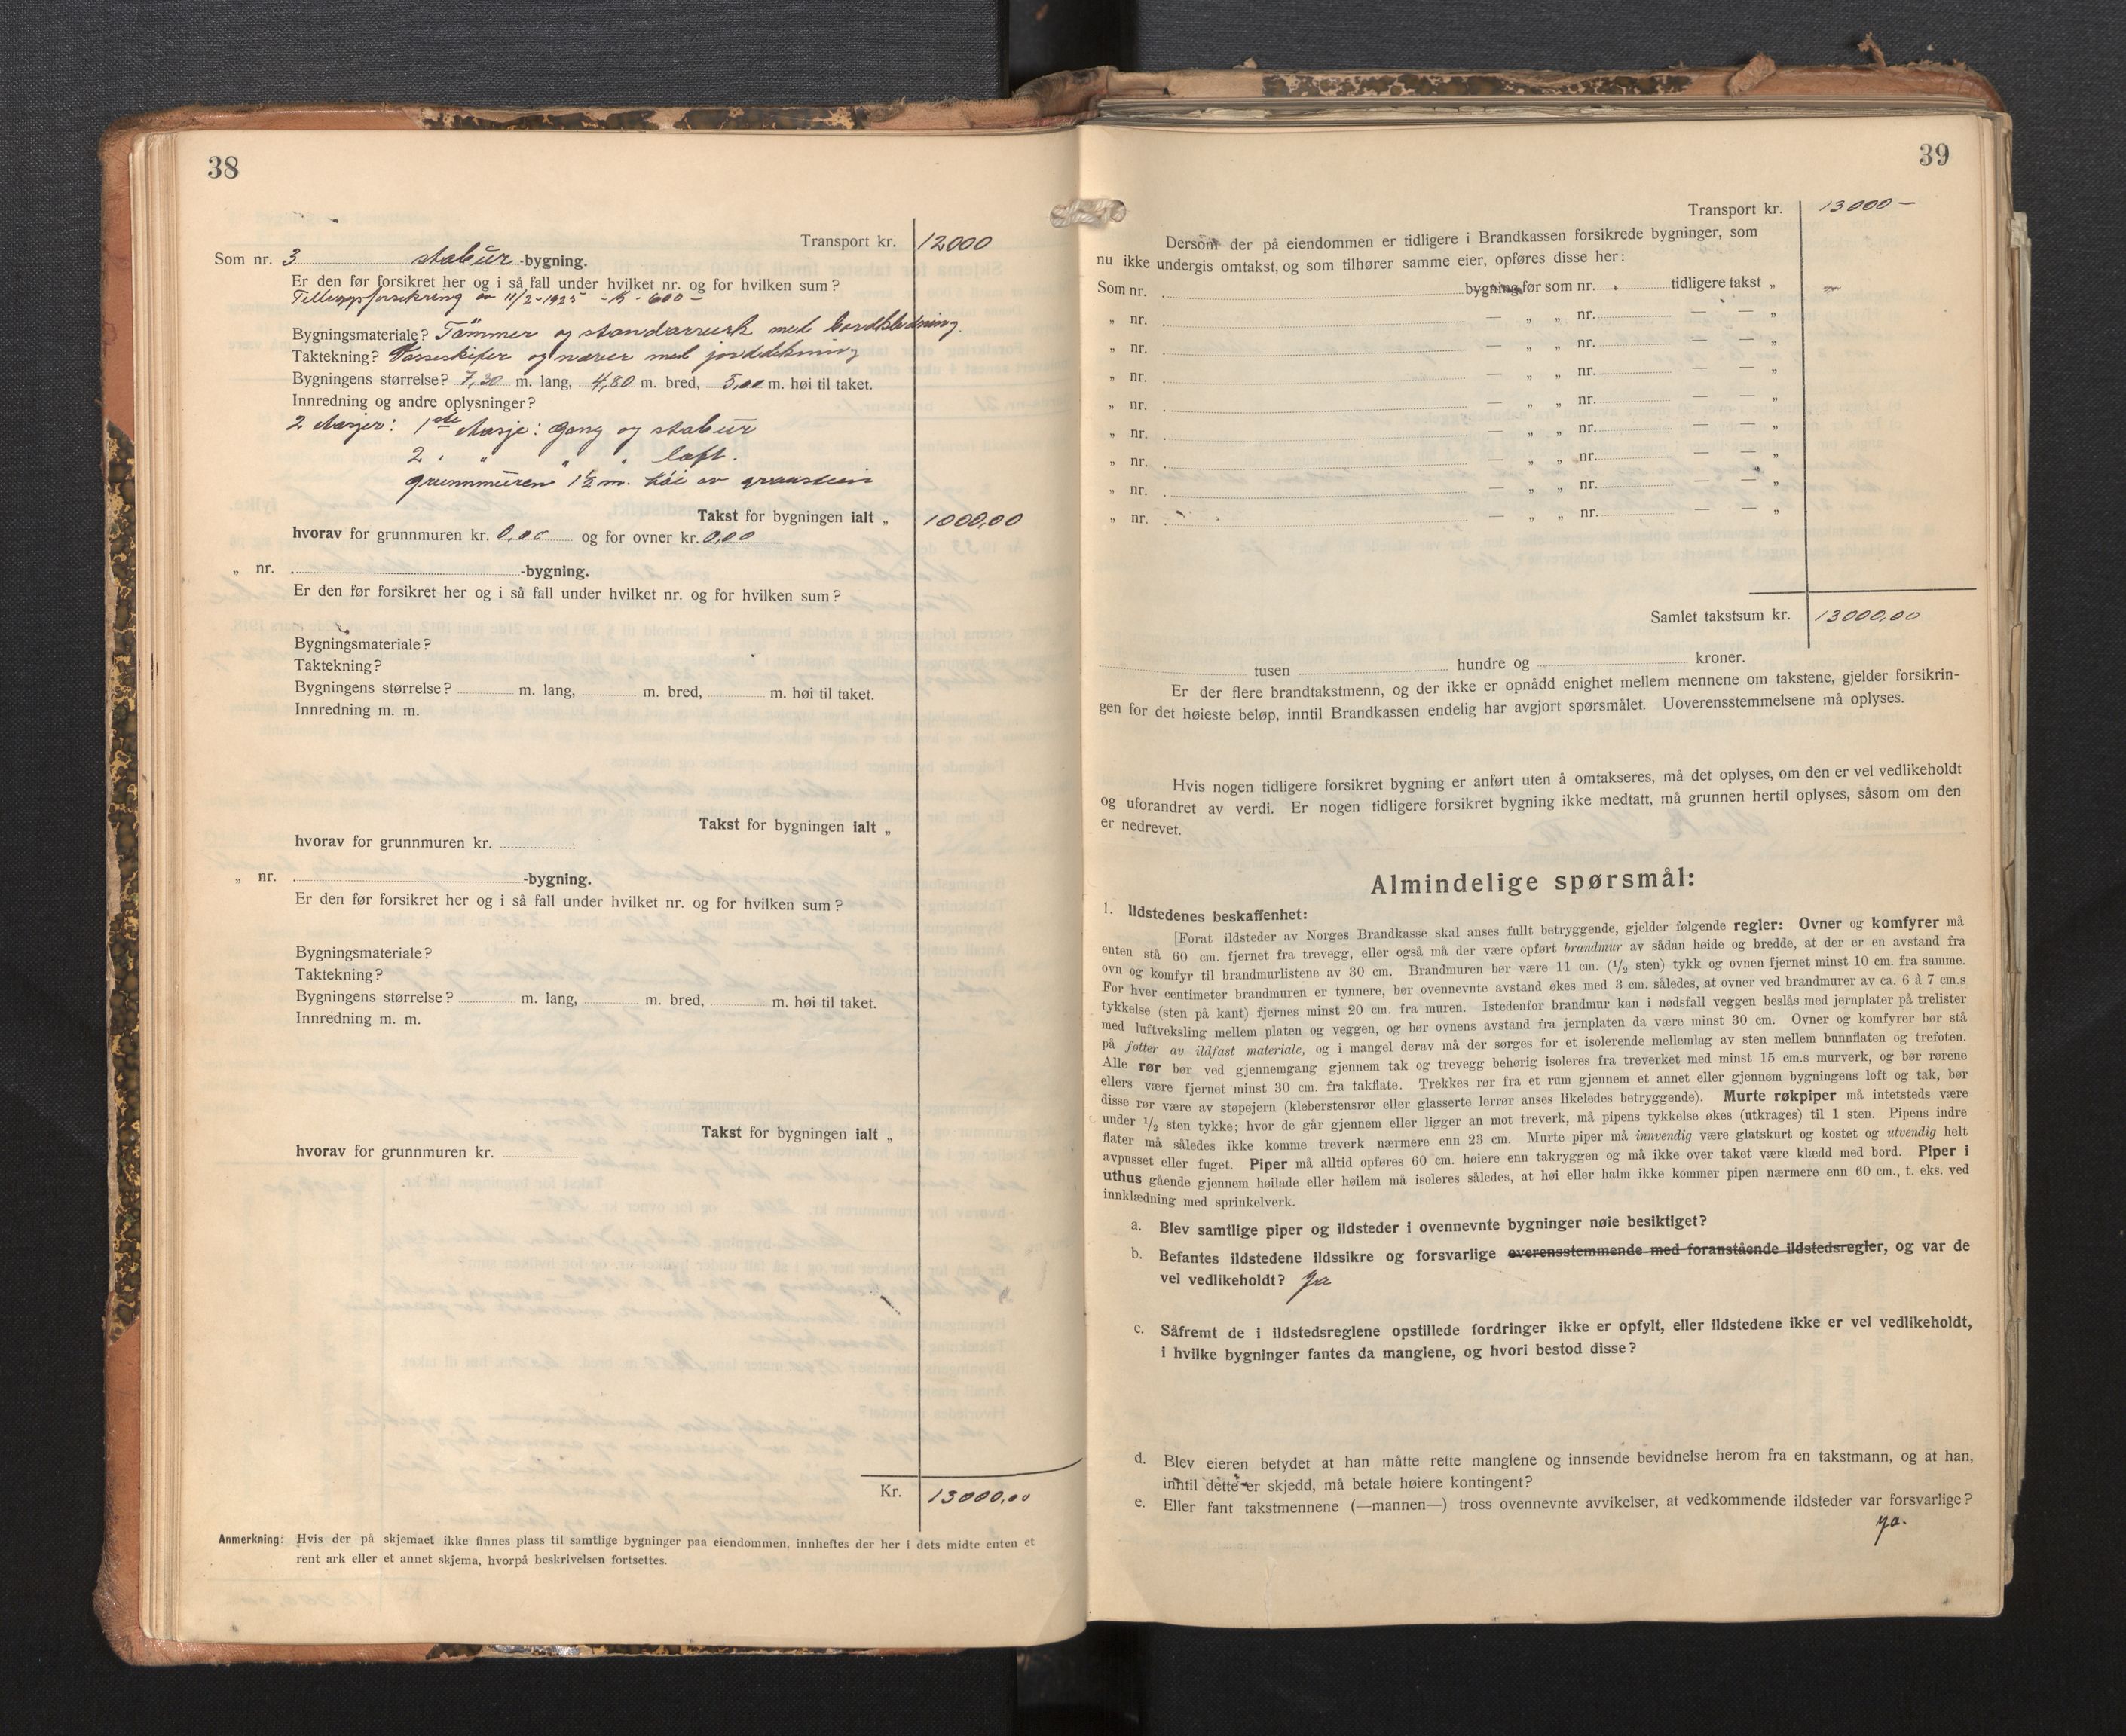 38
Transport kr. 12000
Som nr. 3 stabur -bygning.
Er den før forsikret her og i så fall under hvilket nr. og for hvilken sum?
av 11/2-1925 - K - 600 -
Bygningsmateriale? Tömmer og med bordklædning.
Taktekning? og næver med jorddekning
Bygningens størrelse? 7,30 m. lang, 4,80 m. bred, 5,00 m. høi til taket.
Innredning og andre oplysninger?
2 etasjer: 1ste etasje: gang og stabur
2 " " " loft.
grunnmuren 1½ m. høi av graastein
Takst for bygningen ialt „ 1000,00
hvorav for grunnmuren kr. 0,00 og for ovner kr. 0,00
„ nr. -bygning.
Er den før forsikret her og i så fall under hvilket nr. og for hvilken sum?
Bygningsmateriale?
Taktekning?
Bygningens størrelse? m. lang, m. bred, m. høi til taket.
Innredning m. m.
Takst for bygningen ialt „
hvorav for grunnmuren kr.
„ nr. -bygning.
Er den før forsikret her og i så fall under hvilket nr. og for hvilken sum?
Bygningsmateriale?
Taktekning?
Bygningens størrelse? m. lang, m. bred, m. høi til taket.
Innredning m. m.
Takst for bygningen ialt „
hvorav for grunnmuren kr.
Kr. 13000,00
Anmerkning: Hvis der på skjemaet ikke finnes plass til samtlige bygninger paa eiendommen, innheftes der her i dets midte enten et
rent ark eller et annet skjema, hvorpå beskrivelsen fortsettes.
39
Transport kr. 13000 —
Dersom der på eiendommen er tidligere i Brandkassen forsikrede bygninger, som
nu ikke undergis omtakst, og som tilhører samme eier, opføres disse her:
Som nr. bygning, før som nr. tidligere takst „
„ nr. — „ „ nr. — — „
„ nr. — „ „ nr. — — „
„ nr. — „ „ nr. — — „
„ nr. — „ „ nr. — — „
„ nr. — „ „ nr. — — „
„ nr. — „ „ nr. — — „
„ nr. — „ „ nr. — — „
„ nr. — „ „ nr. — — „
Samlet takstsum kr. 13000,00
tusen hundre og kroner.
Er der flere brandtakstmenn, og der ikke er opnådd enighet mellem mennene om takstene, gjelder forsikrin-
gen for det høieste beløp, inntil Brandkassen endelig har avgjort spørsmålet. Uoverensstemmelsene må oplyses.
Hvis nogen tidligere forsikret bygning er anført uten å omtakseres, må det oplyses, om den er vel vedlikeholdt
og uforandret av verdi. Er nogen tidligere forsikret bygning ikke medtatt, må grunnen hertil oplyses, såsom om den
er nedrevet.
Almindelige spørsmål:
1. Ildstedenes beskaffenhet:
[Forat ildsteder av Norges Brandkasse skal anses fullt betryggende, gjelder følgende regler: Ovner og komfyrer må
enten stå 60 cm. fjernet fra trevegg, eller også må der være opført brandmur av sådan høide og bredde, at der er en avstand fra
ovn og komfyr til brandmurlistene av 30 cm. Brandmuren bør være 11 cm. (1/2 sten) tykk og ovnen fjernet minst 10 cm. fra samme.
For hver centimeter brandmuren er tynnere, bør ovennevnte avstand økes med 3 cm. således, at ovner ved brandmurer av ca. 6 à 7 cm.s
tykkelse (sten på kant) fjernes minst 20 cm. fra muren. Istedenfor brandmur kan i nødsfall veggen beslås med jernplater på trelister
med luftveksling mellem platen og veggen, og bør ovnens avstand fra jernplaten da være minst 30 cm. Ovner og komfyrer bør stå
på føtter av ildfast materiale, og i mangel derav må der sørges for et isolerende mellemlag av sten mellem bunnflaten og trefoten.
Alle rør bør ved gjennemgang gjennem tak og trevegg behørig isoleres fra treverket med minst 15 cm.s murverk, og bør rørene
ellers være fjernet minst 30 cm. fra takflate. Trekkes rør fra et rum gjennem et annet eller gjennem bygningens loft og tak, bør
disse rør være av støpejern (kleberstensrør eller glasserte lerrør anses likeledes betryggende). Murte røkpiper må intetsteds være
under 1/2 sten tykke; hvor de går gjennem eller ligger an mot treverk, må pipens tykkelse økes (utkrages) til 1 sten. Pipens indre
flater må således ikke komme treverk nærmere enn 23 cm. Murte piper må innvendig være glatskurt og kostet og utvendig helt
avpusset eller fuget. Piper må alltid opføres 60 cm. høiere enn takryggen og må ikke over taket være klædd med bord. Piper i
uthus gående gjennem høilade eller høilem må isoleres således, at høi eller halm ikke kommer pipen nærmere enn 60 cm., t. eks. ved
innklædning med sprinkelverk.
a. Blev samtlige piper og ildsteder i ovennevnte bygninger nøie besiktiget?
b. Befantes ildstedene ildssikre og forsvarlige overensstemmende med foranstående ildstedsregler, og var de
vel vedlikeholdt? Ja
c. Såfremt de i ildstedsreglene opstillede fordringer ikke er opfylt, eller ildstedene ikke er vel vedlikeholdt,
i hvilke bygninger fantes da manglene, og hvori bestod disse?
d. Blev eieren betydet at han måtte rette manglene og innsende bevidnelse herom fra en takstmann, og at han,
inntil dette er skjedd, må betale høiere kontingent?
e. Eller fant takstmennene (—mannen—) tross ovennevnte avvikelser, at vedkommende ildsteder var forsvarlige?
ja.